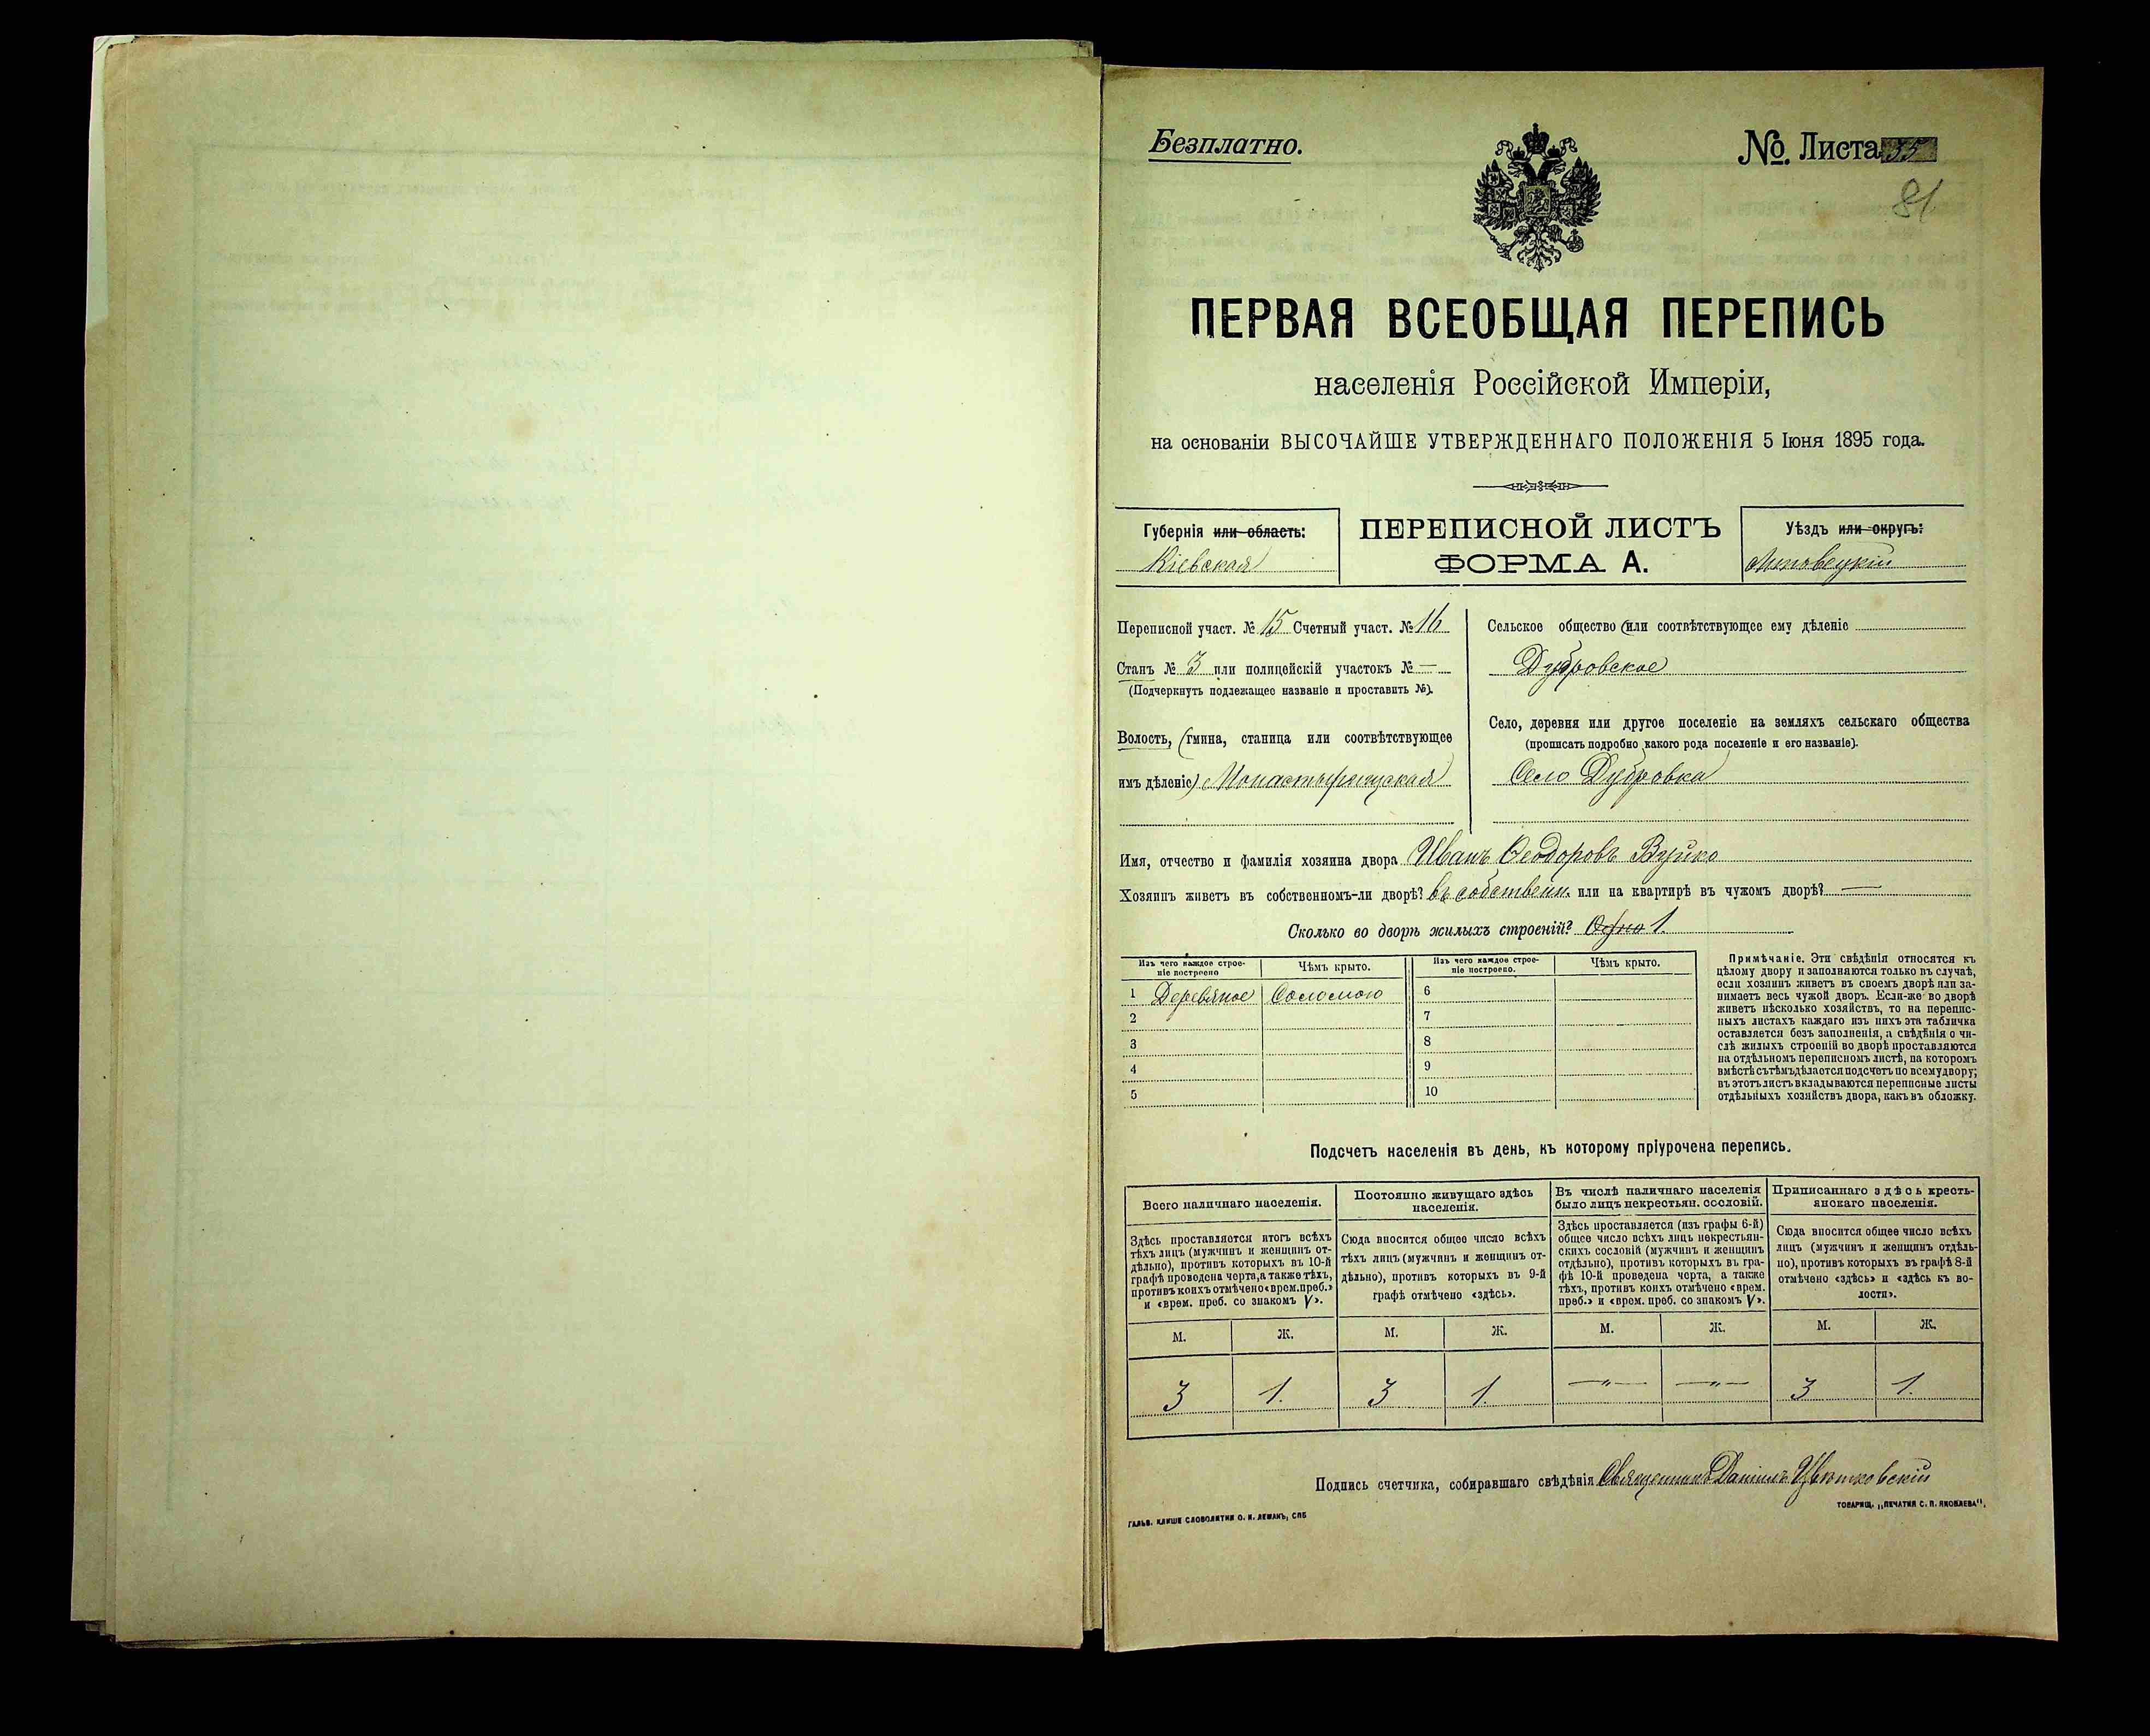 Безплатно.
№ Листа 35
81
ПЕРВАЯ ВСЕОБЩАЯ ПЕРЕПИСЬ
населенія Россійской Имперіи,
на основаніи ВЫСОЧАЙШЕ УТВЕРЖДЕННАГО ПОЛОЖЕНІЯ 5 Іюня 1895 года.
Губернія или область:
Кіевская
ПЕРЕПИСНОЙ ЛИСТЪ
ФОРМА А.
Уѣздъ или округъ:
Липовецкій
Переписной участ. № 15 Счетный участ. № 16
Станъ № 3 или полицейскій участокъ № —
(Подчеркнуть подлежащее названіе и проставить №).
Волость, (гмина, станица или соотвѣтствующее
имъ дѣленіе) Монастырищская
Сельское общество (или соотвѣтствующее ему дѣленіе
Дубровское
Село, деревня или другое поселеніе на земляхъ сельскаго общества
(прописать подробно какого рода поселеніе и его названіе).
Село Дубровка
Имя, отчество и фамилія хозяина двора Иванъ Ѳеодоровъ Вуйко
Хозяинъ живетъ въ собственномъ-ли дворѣ? въ собственн. или на квартирѣ въ чужомъ дворѣ? —
Сколько во дворѣ жилыхъ строеній? Одно 1.
Изъ чего каждое строе-
ніе построено
Чѣмъ крыто.
Изъ чего каждое строе-
ніе построено.
Чѣмъ крыто.
1 Деревяное Соломою 6
2 7
3 8
4 9
5 10
Примѣчаніе. Эти свѣдѣнія относятся къ
цѣлому двору и заполняются только въ случаѣ,
если хозяинъ живетъ въ своемъ дворѣ или за-
нимаетъ весь чужой дворъ. Если-же во дворѣ
живетъ нѣсколько хозяйствъ, то на перепис-
ныхъ листахъ каждаго изъ нихъ эта табличка
оставляется безъ заполненія, а свѣдѣнія о чи-
слѣ жилыхъ строеній во дворѣ проставляются
на отдѣльномъ переписномъ листѣ, на которомъ
вмѣстѣ съ тѣмъ дѣлается подсчетъ по всему двору;
въ этотъ листъ вкладываются переписные листы
отдѣльныхъ хозяйствъ двора, какъ въ обложку.
Подсчетъ населенія въ день, къ которому пріурочена перепись.
Всего наличнаго населенія.
Здѣсь проставляется итогъ всѣхъ
тѣхъ лицъ (мужчинъ и женщинъ от-
дѣльно), противъ которыхъ въ 10-й
графѣ проведена черта, а также тѣхъ,
противъ коихъ отмѣчено «врем. преб.»
и «врем. преб. со знакомъ V».
Постоянно живущаго здѣсь
населенія.
Сюда вносится общее число всѣхъ
тѣхъ лицъ (мужчинъ и женщинъ от-
дѣльно), противъ которыхъ въ 9-й
графѣ отмѣчено «здѣсь».
Въ числѣ наличнаго населенія
было лицъ некрестьян. сословій.
Здѣсь проставляется (изъ графы 6-й)
общее число всѣхъ лицъ некрестьян-
скихъ сословій (мужчинъ и женщинъ
отдѣльно), противъ которыхъ въ гра-
фѣ 10-й проведена черта, а также
тѣхъ, противъ коихъ отмѣчено «врем.
преб.» и «врем. преб. со знакомъ V».
Приписаннаго здѣсь кресть-
янскаго населенія.
Сюда вносится общее число всѣхъ
лицъ (мужчинъ и женщинъ отдѣль-
но), противъ которыхъ въ графѣ 8-й
отмѣчено «здѣсь» и «здѣсь къ во-
лости».
М. Ж. М. Ж. М. Ж. М. Ж.
3 1. 3 1. —"— —"— 3 1.
Подпись счетчика, собиравшаго свѣдѣнія Священникъ Даніилъ Цвѣтковскій
ГАЛЬВ. КЛИШЕ СЛОВОЛИТНИ О. И. ЛЕМАНЪ, СПБ
ТОВАРИЩ. „ПЕЧАТНЯ С. П. ЯКОВЛЕВА“.